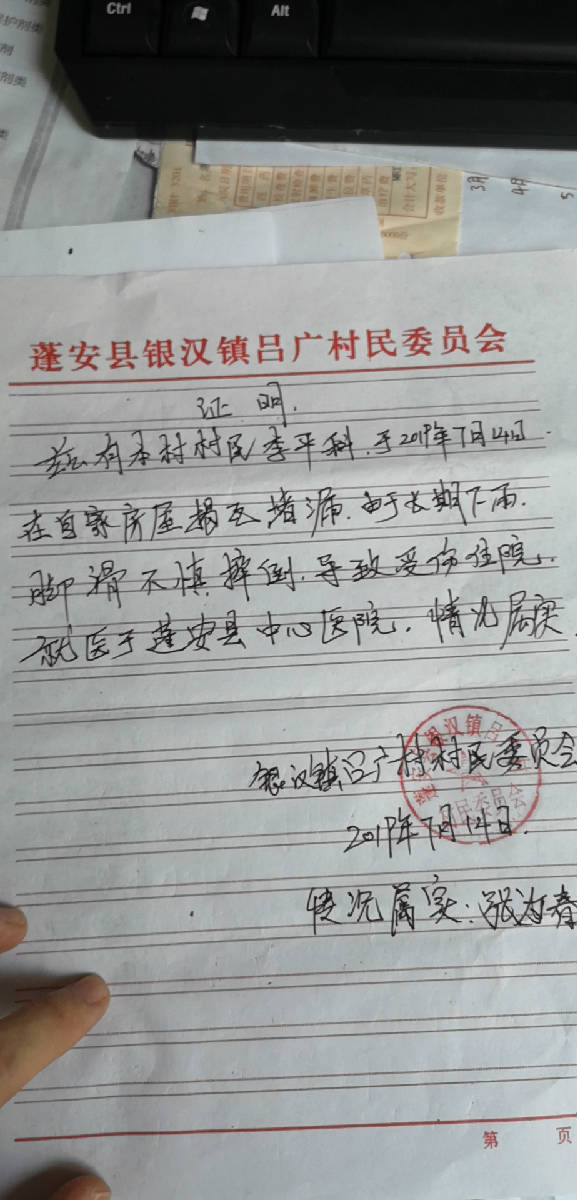 Ctrl
Alt
3月
4月
5
蓬安县银汉镇吕广村民委员会
证明.
兹有本村村民李平科,于2019年7月14日.
在自家房屋捡瓦堵漏.由于长期下雨.
脚滑不慎摔倒.导致受伤住院.
就医于蓬安县中心医院.情况属实.
银汉镇吕广村村民委员会
2019年7月14日.
情况属实:张为春
第 页